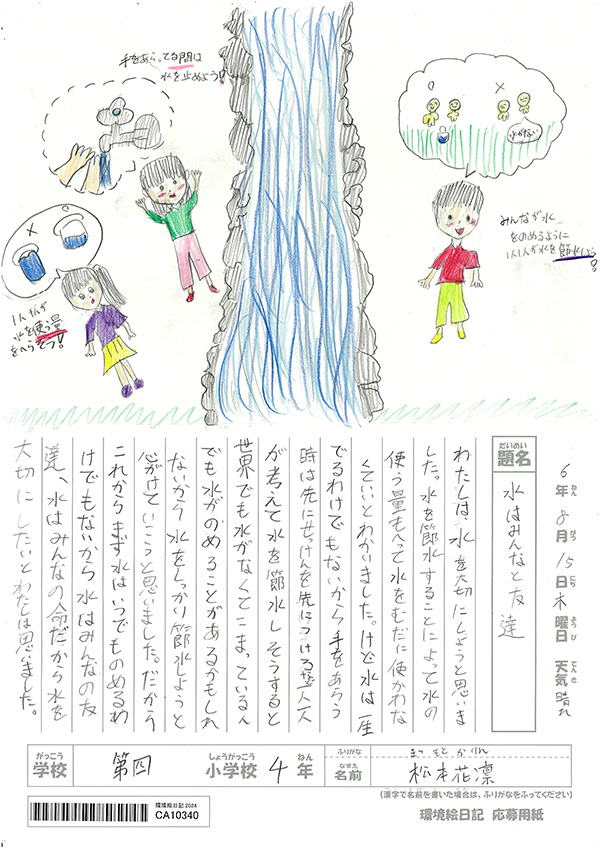 手をあらってる間は
水を止めよう!
○
×
×
○
水がない
みんなが水
をのめるように
1人1人が水を節水しよう
1人1人が
水を使う量
をへらそう!
6年8月15日木曜日 天気 晴れ
ねん がつ にち ようび てんき
だいめい
題名
水はみんなと友達
わたしは、水を大切にしようと思いま
した。水を節水することによって水の
使う量もへって水をむだに使かわな
くていいとわかりました。けど水は一生
でるわけでもないから手をあらう
時は先にせっけんを先につける。一人一人
が考えて水を節水しそうすると
世界でも水がなくてこまっている人
でも水がのめることがあるかもしれ
ないから水をしっかり節水しようと
心がけていこうと思いました。だから
これからまず水はいつでものめるわ
けでもないから水はみんなの友
達、水はみんなの命だから水を
大切にしたいとわたしは思いました。
がっこう
学校
第四
しょうがっこう
小学校
4
ねん
年
ふりがな
まつもとかりん
なまえ
名前
松本花凛
(漢字で名前を書いた場合は、ふりがなをふってください)
環境絵日記2024
CA10340
環境絵日記 応募用紙